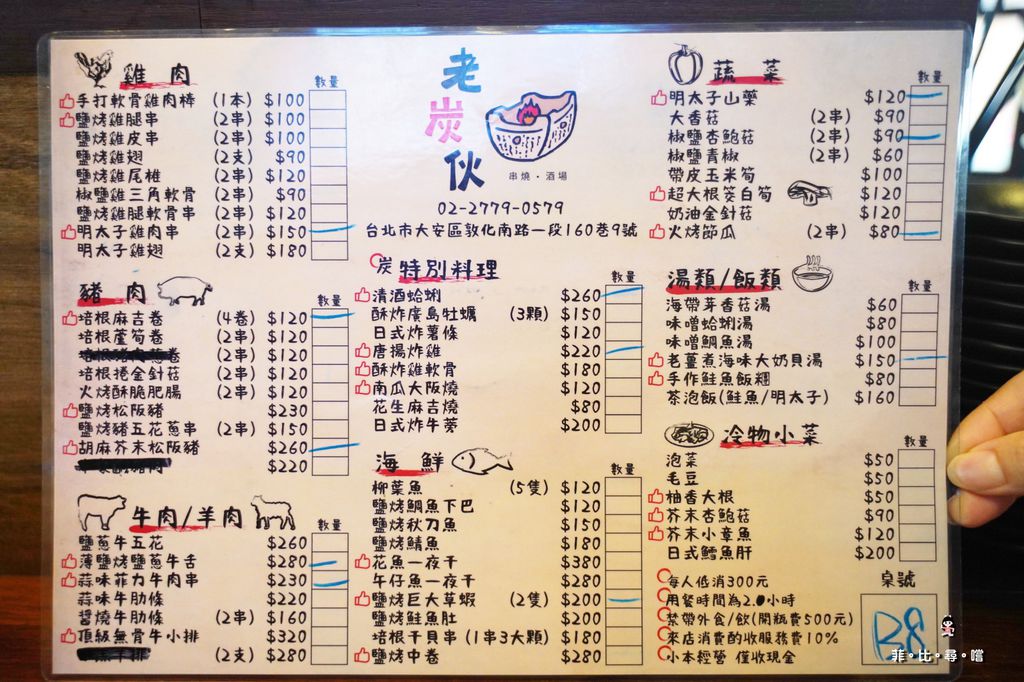 雞肉
數量
手打軟骨雞肉棒 (1本) $100
鹽烤雞腿串 (2串) $100
鹽烤雞皮串 (2串) $100
鹽烤雞翅 (2支) $90
鹽烤雞尾椎 (2串) $120
椒鹽雞三角軟骨 (2串) $90
鹽烤雞腿軟骨串 (2串) $120
明太子雞肉串 (2串) $150
明太子雞翅 (2支) $180
豬肉
數量
培根麻吉卷 (4卷) $120
培根蘆筍卷 (2串) $120
(2串) $120
培根捲金針菇 (2串) $120
火烤酥脆肥腸 (2串) $120
鹽烤松阪豬 $230
鹽烤豬五花蔥串 (2串) $150
胡麻芥末松阪豬 $260
$220
牛肉/羊肉
數量
鹽蔥牛五花 $260
薄鹽烤鹽蔥牛舌 $280
蒜味菲力牛肉串 $230
蒜味牛肋條 $220
醬燒牛肋條 (2串) $160
頂級無骨牛小排 $320
(2支) $280
老炭伙
串燒・酒場
02-2779-0579
台北市大安區敦化南路一段160巷9號
炭特別料理
數量
清酒蛤蜊 $260
酥炸廣島牡蠣 (3顆) $150
日式炸薯條 $120
唐揚炸雞 $220
酥炸雞軟骨 $180
南瓜大阪燒 $120
花生麻吉燒 $80
日式炸牛蒡 $200
海鮮
數量
柳葉魚 (5隻) $120
鹽烤鯛魚下巴 $120
鹽烤秋刀魚 $150
鹽烤鯖魚 $180
花魚一夜干 $380
午仔魚一夜干 $280
鹽烤巨大草蝦 (2隻) $200
鹽烤鮭魚肚 $200
培根干貝串 (1串3大顆) $180
鹽烤中卷 $280
蔬菜
數量
明太子山藥 $120
大香菇 (2串) $90
椒鹽杏鮑菇 (2串) $90
椒鹽青椒 (2串) $60
帶皮玉米筍 $100
超大根筊白筍 $120
奶油金針菇 $120
火烤節瓜 (2串) $80
湯類/飯類
數量
海帶芽香菇湯 $60
味噌蛤蜊湯 $80
味噌鯛魚湯 $100
老薑煮海味大奶貝湯 $150
手作鮭魚飯糰 $80
茶泡飯(鮭魚/明太子) $160
冷物小菜
數量
泡菜 $50
毛豆 $50
柚香大根 $50
芥末杏鮑菇 $90
芥末小章魚 $120
日式鱈魚肝 $200
每人低消300元
用餐時間為2.0小時
禁帶外食/飲(開瓶費500元)
來店消費酌收服務費10%
小本經營 僅收現金
桌號
B8
菲・比・尋・嚐